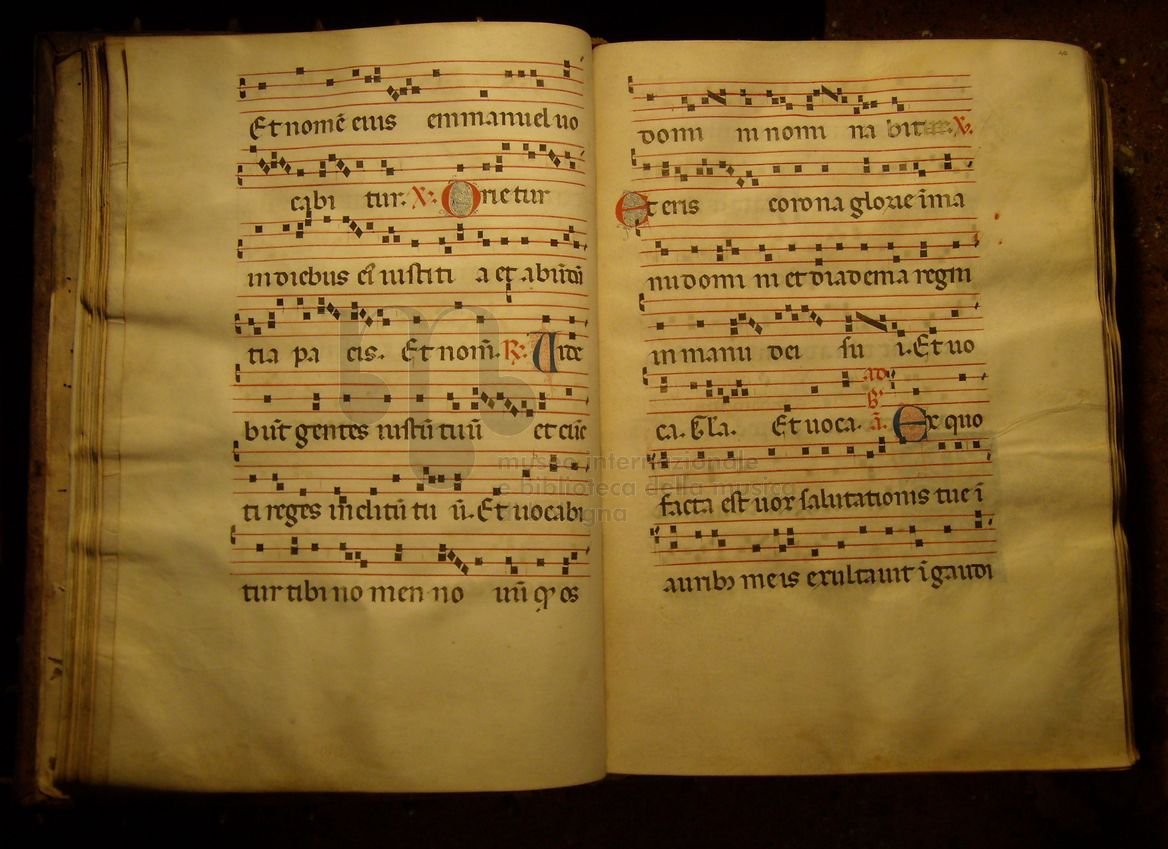 Et nomē eius emmanuel uo
cabi tur. ℣. Orietur
in diebus eī iustiti a et abūdā
tia pa cis. Et nom̄. ℟. Uide
būt gentes iustū tuū et cūc
ti reges inclitū tu ū. Et uocabi
tur tibi no men no uū qḍ os
domi ni nomi na bit ℣.
Et eris corona glorie ī ma
nu domi ni et diadema regni
in manu dei su i. Et uo
ad
ca. Gla. Et uoca. B' ā. Ex quo
facta est uox salutationis tue ī
auribꝫ meis exultauit ī gaudi
museo internazionale
e biblioteca della musica